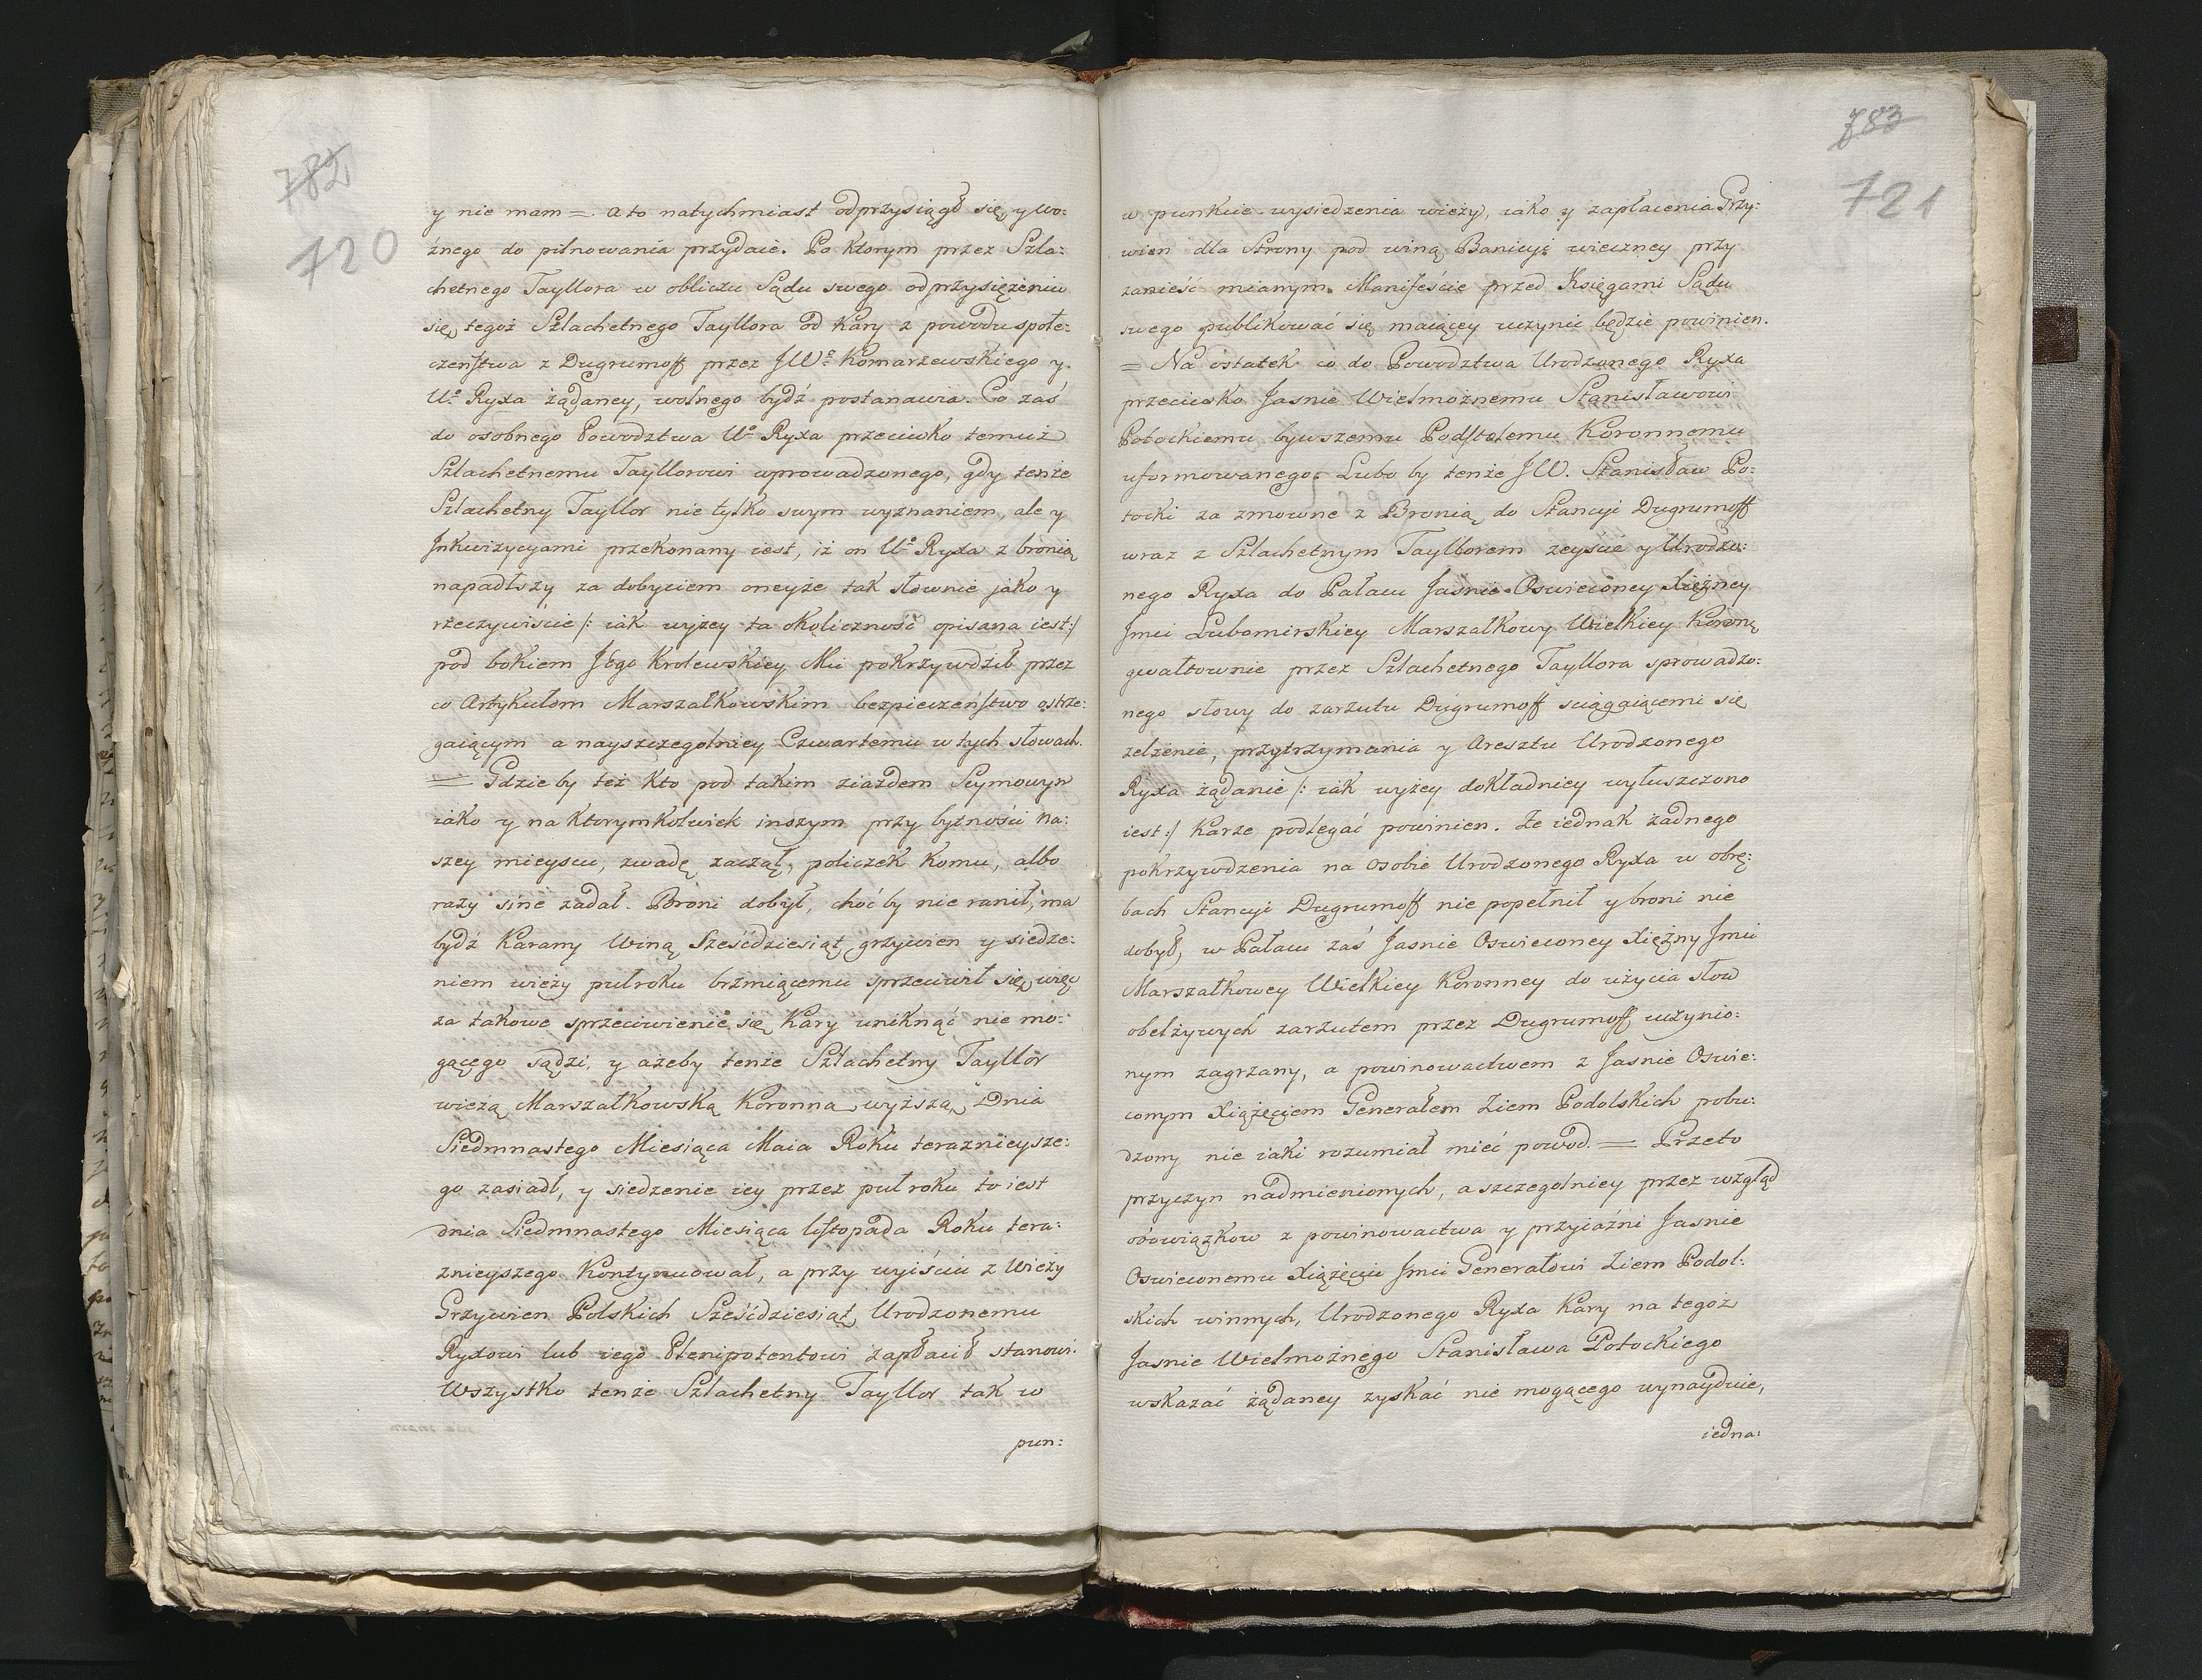 782
720
y nie mam =. a to natychmiast odprzysiągł się, y wo:
źnego do pilnowania przydaie. Po ktorym przez Szla:
chetnego Tayllora w obliczu Sądu swego odprzysiężeniu
się, tegoż Szlachetnego Tayllora od kary z powodu społe:
czeństwa z Dugrumoff przez JWo Komarzewskiego y
Uo Ryxa żądaney, wolnego bydź postanawia. Co zaś
do osobnego Powodztwa Uo Ryxa przeciwko temuż
Szlachetnemu Tayllorowi wprowadzonego, gdy tenże
Szlachetny Tayllor nie tylko swym wyznaniem, ale y
Inkwizycyami przekonany iest, iż on Uo Ryxa z bronią
napadłszy za dobyciem oneyże tak słownie jako y
rzeczywiście /: iak wyżey ta okoliczność opisana iest :/
pod bokiem Jego Krolewskiey Mci pokrzywdził przez
co Artykułom Marszałkowskim bezpieczeństwo ostrze:
gaiącym a nayszczegolniey Czwartemu w tych słowach.
= Gdzie by też kto pod takim ziazdem Seymowym
iako y na ktorymkolwiek inszym przy bytności na:
szey mieyscu, zwadę zaczął, policzek komu, albo
razy sine zadał. Broni dobył, choć by nie ranił, ma
bydź karany winą Sześćdziesiąt grzywien y siedze:
niem wieży pułroku brzmiącemu sprzeciwił się, więc
za takowe sprzeciwienie się kary uniknąć nie mo:
gącego sądzi, y ażeby tenże Szlachetny Tayllor
wieżą Marszałkowską Koronną wyższą, Dnia
Siedmnastego Miesiąca Maia Roku teraznieysze:
go zasiadł, y siedzenie iey przez puł roku to iest
dnia Siedmnastego Miesiąca listopada Roku tera:
znieyszego kontynuował, a przy wyiściu z Wieży
Grzywien Polskich Sześćdziesiąt, Urodzonemu
Ryxowi lub iego Plenipotentowi zapłacił stanowi.
Wszystko tenże Szlachetny Tayllor tak w
pun:
783
721
w punkcie wysiedzenia wieży, iako y zapłacenia Grzy:
wien dla Strony pod winą Banicyi wieczney przy
zanieść mianym Manifeście przed Księgami Sądu
swego publikować się maiącey uczynić będzie powinien.
= Na ostatek co do Powodztwa Urodzonego Ryxa
przeciwko Jasnie Wielmożnemu Stanisławowi
Potockiemu bywszemu Podstolemu Koronnemu
uformowanego. Lubo by tenże JW. Stanisław Po:
tocki za zmowne z Bronią do Stancyi Dugrumoff
wraz z Szlachetnym Tayllorem zeyście y Urodzo:
nego Ryxa do Pałacu Jasnie Oswieconey Xiężney
Jmci Lubomirskiey Marszałkowy Wielkiey Koronę
gwałtownie przez Szlachetnego Tayllora sprowadzo:
nego słowy do zarzutu Dugrumoff sciągaiącemi się
zelżenie, przytrzymania y Aresztu Urodzonego
Ryxa żądanie /: iak wyżey dokładniey wyłuszczono
iest :/ karze podlegać powinien. Ze iednak żadnego
pokrzywdzenia na osobie Urodzonego Ryxa w obrę:
bach Stancyi Dugrumoff nie popełnił y broni nie
dobył, w Pałacu zaś Jasnie Oswieconey Xiężny Jmci
Marszałkowey Wielkiey Koronney do użycia słow
obelżywych zarzutem przez Dugrumoff uczynio:
nym zagrzany, a powinowactwem z Jasnie Oswie:
conym Xiążęciem Generałem Ziem Podolskich pobu:
dzony nie iaki rozumiał mieć powod. = Przeto
przyczyn nadmienionych, a szczegolniey przez wzgląd
obowiązkow z powinowactwa y przyiaźni Jasnie
Oswieconemu Xiążęciu Jmci Generałowi Ziem Podol:
skich winnych, Urodzonego Ryxa kary na tegoż
Jasnie Wielmożnego Stanisława Potockiego
wskazać żądaney zyskać nie mogącego wynayduie,
iedna: